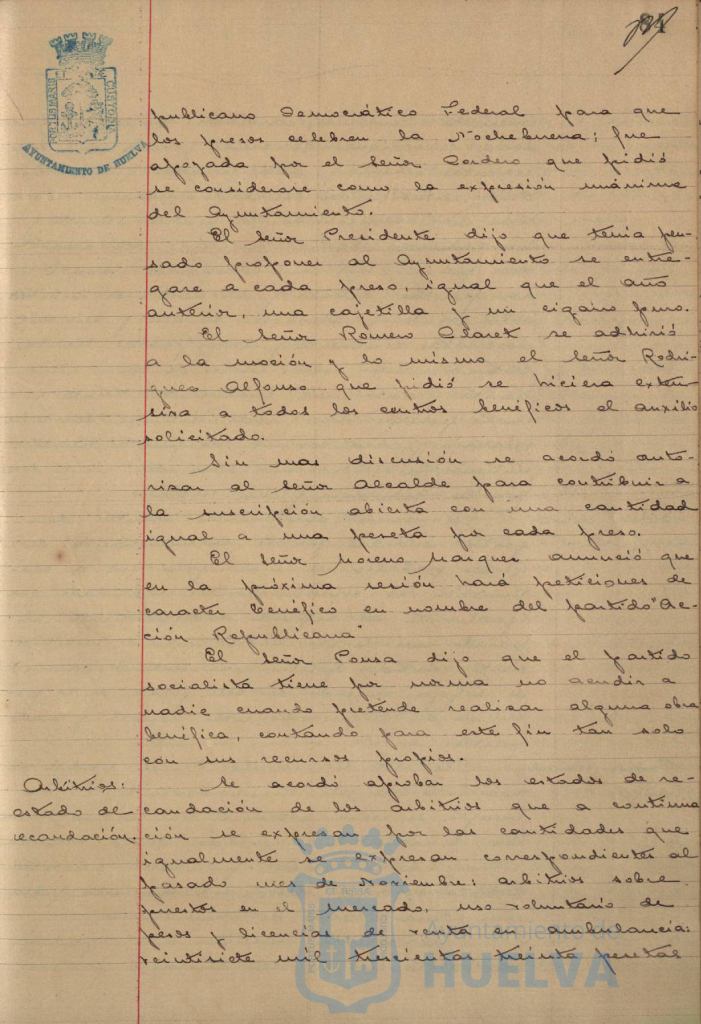 84
PORTUS MARIS ET TERRAE CUSTODIA
AYUNTAMIENTO DE HUELVA
publicano Democrático Federal para que
los presos celebren la Nochebuena; fue
apoyada por el señor Cordero que pidió
se considerase como la expresión unánime
del Ayuntamiento.
El señor Presidente dijo que tenia pen-
sado proponer al Ayuntamiento se entre-
gare a cada preso, igual que el año
anterior, una cajetilla y un cigarro puro.
El señor Romero Claret se adhirió
a la moción y lo mismo el señor Rodri-
guez Alfonso que pidió se hiciera exten-
siva a todos los centros benéficos el auxilio
solicitado.
Sin mas discusión se acordó auto-
rizar al señor Alcalde para contribuir a
la suscripción abierta con una cantidad
igual a una peseta por cada preso.
El señor Moreno Marquez anunció que
en la próxima sesión hará peticiones de
caracter benéfico en nombre del partido "Ac-
ción Republicana"
El señor Ponsa dijo que el partido
socialista tiene por norma no acudir a
nadie cuando pretende realizar alguna obra
benéfica, contando para este fin tan solo
con sus recursos propios.
Arbitrios:
estado de
recaudación.
Se acordó aprobar los estados de re-
caudación de los arbitrios que a continua
ción se expresan por las cantidades que
igualmente se expresan correspondientes al
pasado mes de Noviembre: arbitrios sobre
puestos en el mercado, uso voluntario de
pesos y licencias de venta en ambulancia:
veintisiete mil trescientas treinta pesetas
Ayuntamiento de
HUELVA